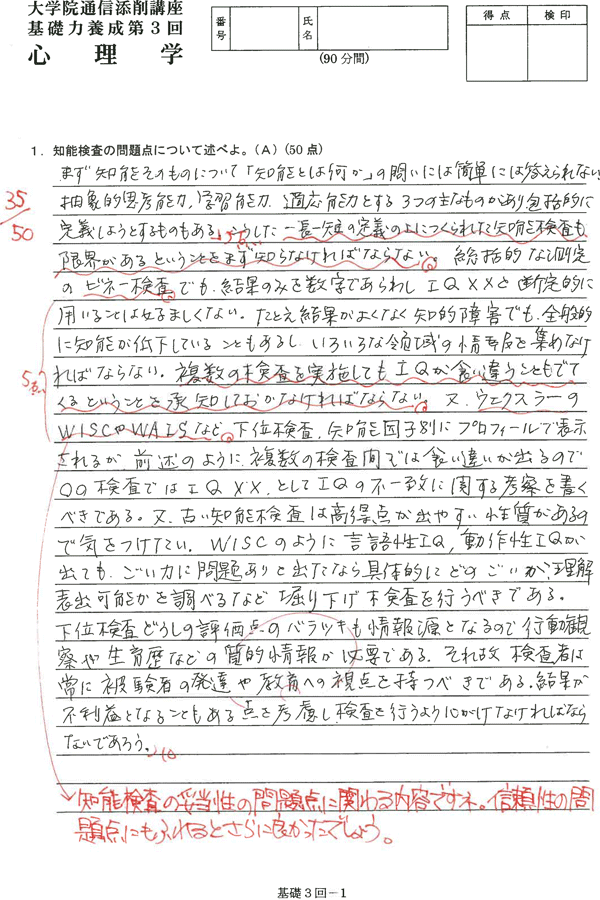 大学院通信添削講座
基礎力養成第3回
心理学
番号
氏名
(90分間)
得点
検印
1. 知能検査の問題点について述べよ。(A) (50点)
35/50
まず知能そのものについて「知能とは何か」の問いには簡単には答えられない
抽象的思考能力、学習能力、適応能力とする3つの主なものがあり包括的に
定義しようとするものもある。こうした一長一短の定義の上につくられた知能検査も
限界があるということをまず知らなければならない。総括的な測定
のビネー検査でも、結果のみを数字であらわしIQXXと断定的に
用いることは好ましくない。たとえ結果がよくなく知的障害でも、全般的
に知能が低下していることもあるし、いろいろな領域の情報を集めなけ
ればならない。複数の検査を実施してもIQが食い違うこともでて
くるということを承知しておかなければならない。又、ウェクスラーの
WISCやWAISなど、下位検査、知能因子別にプロフィールで表示
されるが前述のように、複数の検査間では食い違いが出るので
〇〇検査ではIQXX、としてIQの不一致に関する考察を書く
べきである。又、古い知能検査は高得点が出やすい性質があるの
で気をつけたい。WISCのように言語性IQ、動作性IQが
出ても、ごい力に問題ありと出たなら具体的にどのごいが、理解
表出可能かを調べるなど掘り下げ検査を行うべきである。
下位検査どうしの評価点のバラツキも情報源となるので行動観
察や生育歴などの質的情報が必要である。それ故、検査者は
常に被験者の発達や教育への視点を持つべきである。結果が
不利益となることもある点を考慮し検査を行うよう心がけなければなら
ないであろう。
知能検査の妥当性の問題点に関わる内容ですネ。信頼性の問
題点にもふれるとさらに良かったでしょう。
基礎3回-1